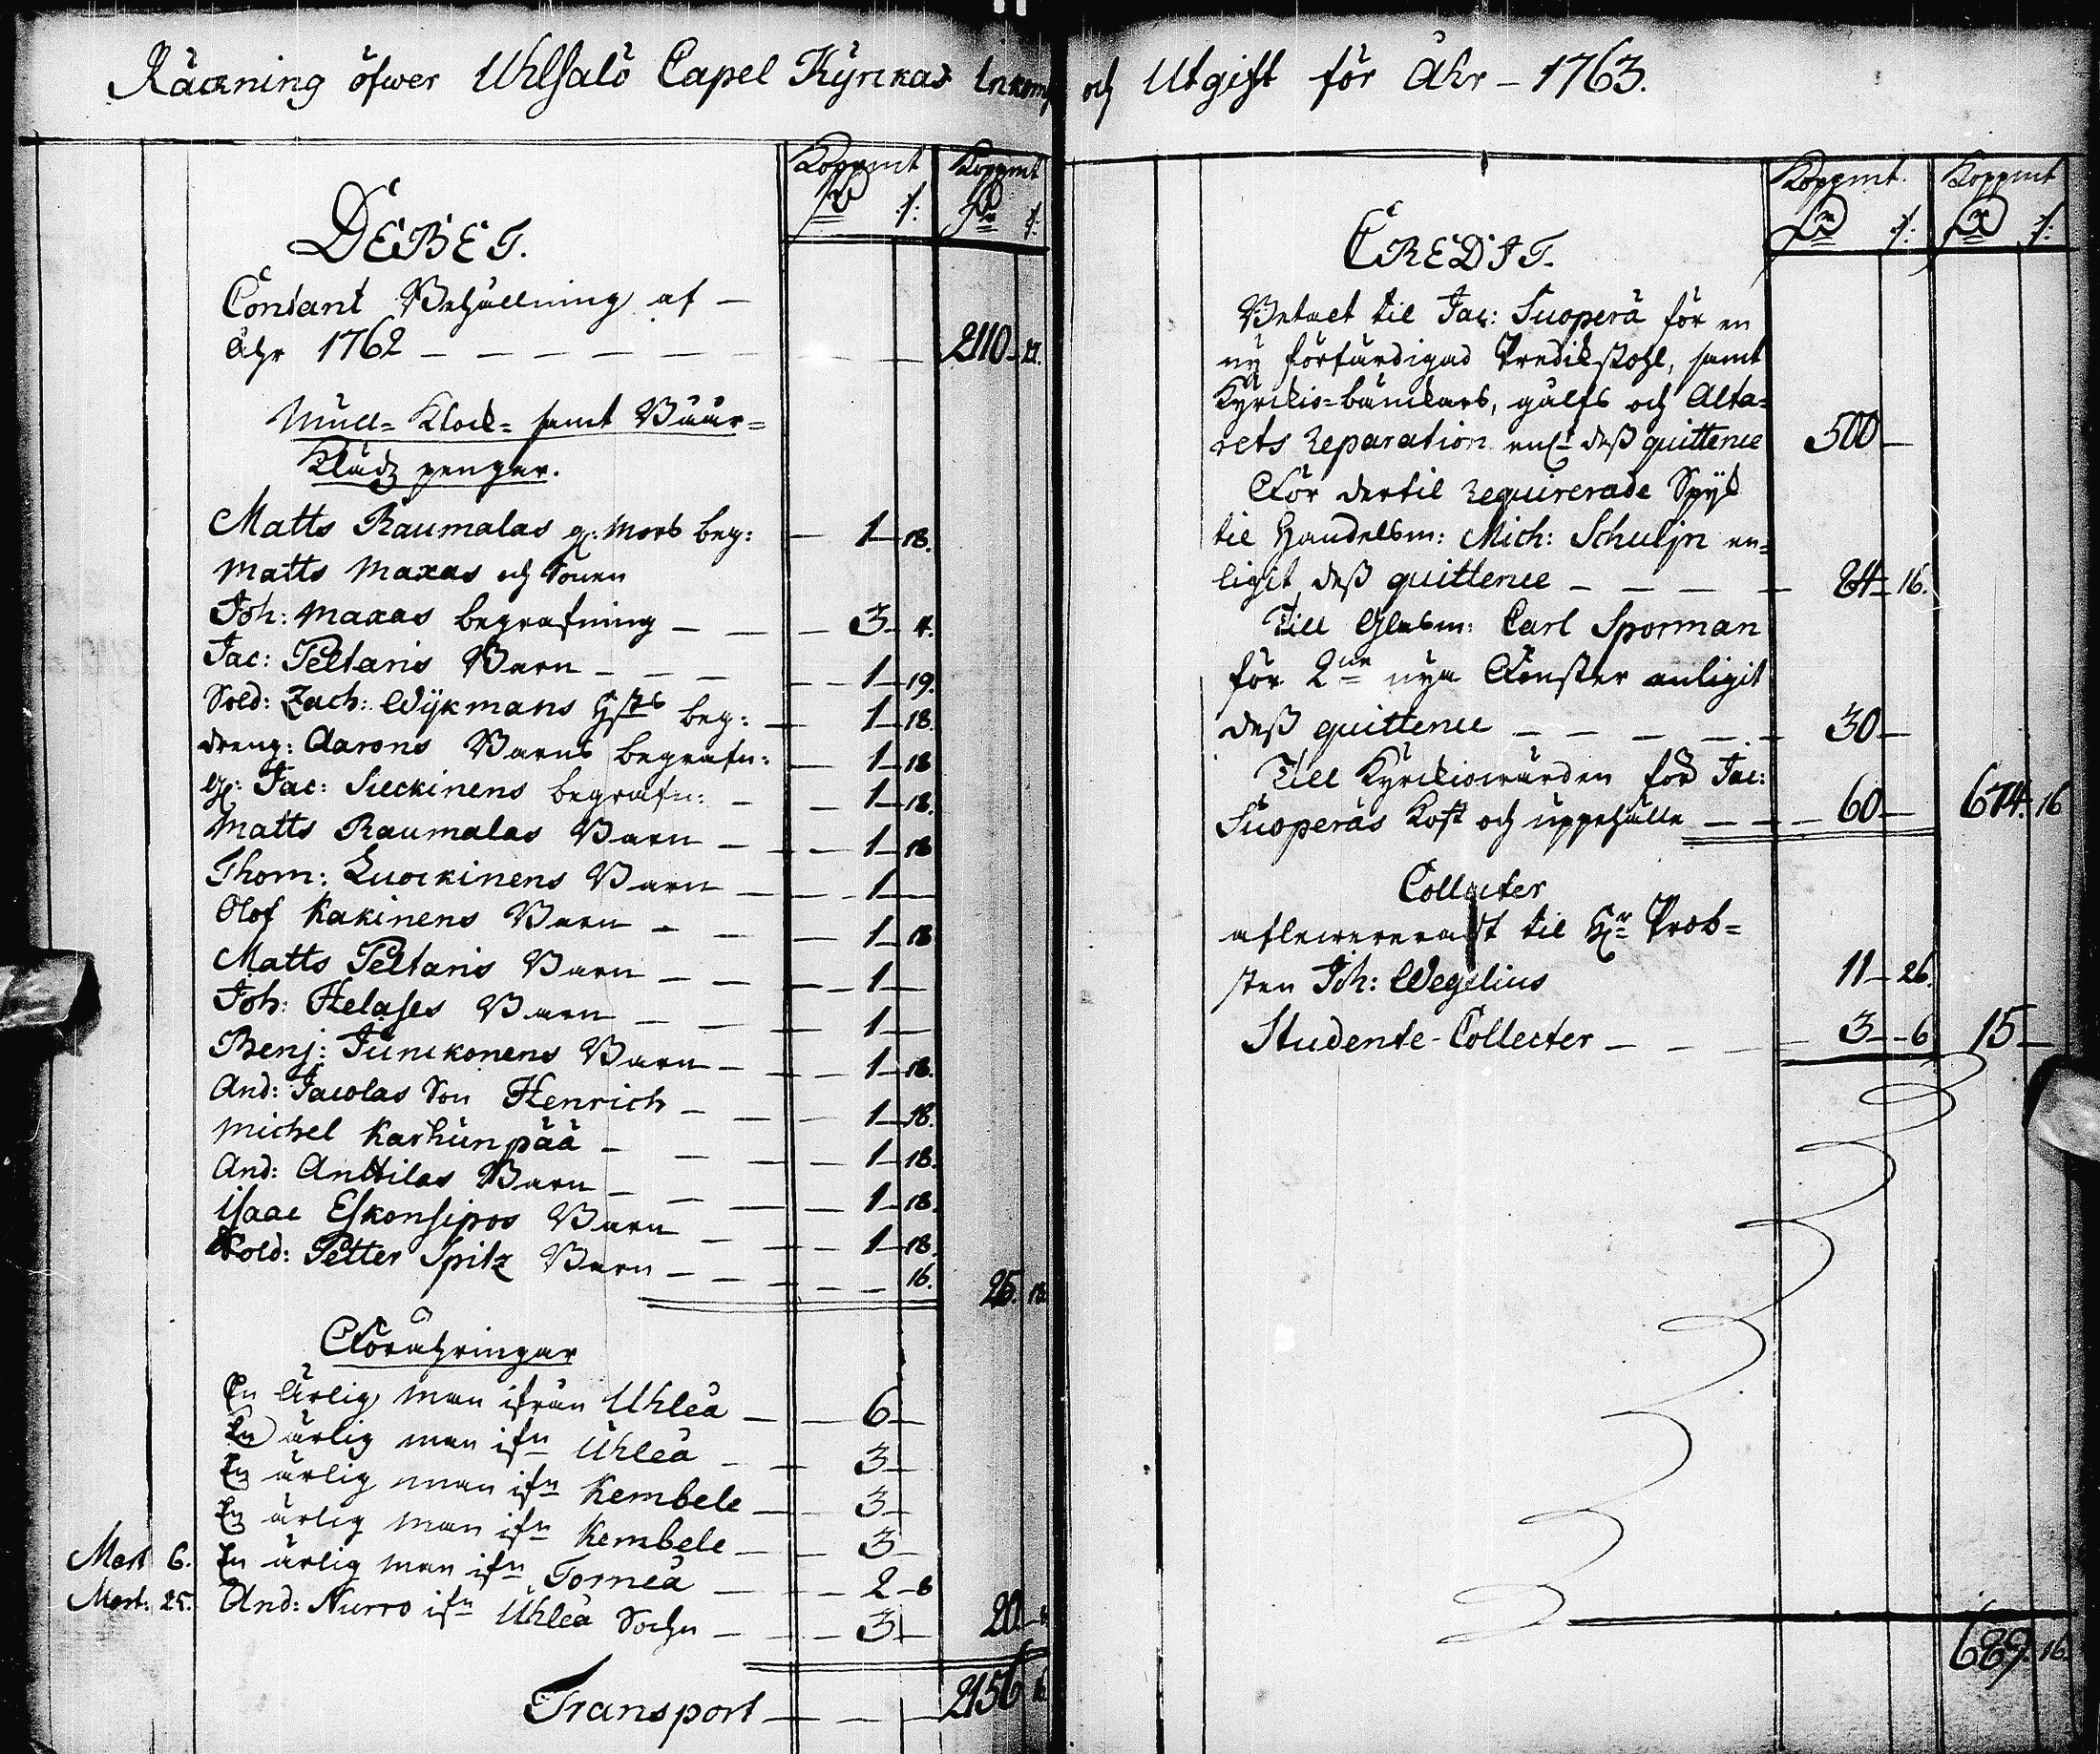 Räckning öfwer Uhlsalö Capel Kyrckas Inkomst och Utgift för Åhr – 1763.
Koppmt Koppmt
DEBET.
Contant Behållning af –
Åhr 1762 – – – – – – 2110 – 21.
Mull- Klock- samt Båår-
Kläds pengar.
Matts Raumalas g: Mors beg: – 1 – 18.
Matts Maxas och Sonen
Joh: Maxas begrafning – – – 3 – 4.
Jac: Peltaris Barn – – – 1 – 19.
Sold: Zach: Wijkmans Hstrs beg: – 1 – 18.
dreng: Aarons Barns begrafn: – 1 – 18
g: Jac: Sieckinens begrafn: – – 1 – 18.
Matts Raumalas Barn – – 1 – 18
Thom: Luockinens Barn – – 1 –
Olof Kakinens Barn – – – 1 – 18
Matts Peltaris Barn – – – 1 –
Joh: Helases Barn – – – 1 –
Benj: Junckonens Barn – – – 1 – 18.
And: Jacolas Son Henrich – – – 1 – 18.
Michel Karhunpää – – – 1 – 18.
And: Anttilas Barn – – – 1 – 18.
Isaac Eskonsipos Barn – – – 1 – 18.
Sold: Petter Spitz Barn – – – – 16. 25. 18.
Förähringar
En ärlig man ifrån Uhleå – – 6 –
En ärlig man ifn Uhleå – – 3 –
En ärlig man ifn Kembele – – 3 –
En ärlig man ifn Kembele – – 3 –
Mart 6. En ärlig man ifn Torneå – – 2 – 8
Mart: 25. And: Nurro ifn Uhleå Sochn – – 3 – 20. –
Transport – – – 2156
Koppmt. Koppmt
CREDIT.
Betalt til Jac: Suoperä för en
ny förfärdigad Predikstohl, samt
Kyrckio-bänckars, gålfs och Alta-
rets Reparation enl: dess quittence 500 –
För dertil requirerade Spijk
til Handelsm: Mich: Schulin en-
ligit dess quittence – – – – 84 – 16.
Till Glasm: Carl Sporman
för 2ne nya Fönster enligit
dess quittence – – – – – 30 –
Till Kyrckiowärden för Jac:
Suoperäs Kost och uppehälle – – – 60 – 674. 16
Collecter
aflewererat til Hr Prob-
sten Joh: Wegelius 11 – 26.
Studente-Collecter – – – 3 – 6 15 –
689. 16.